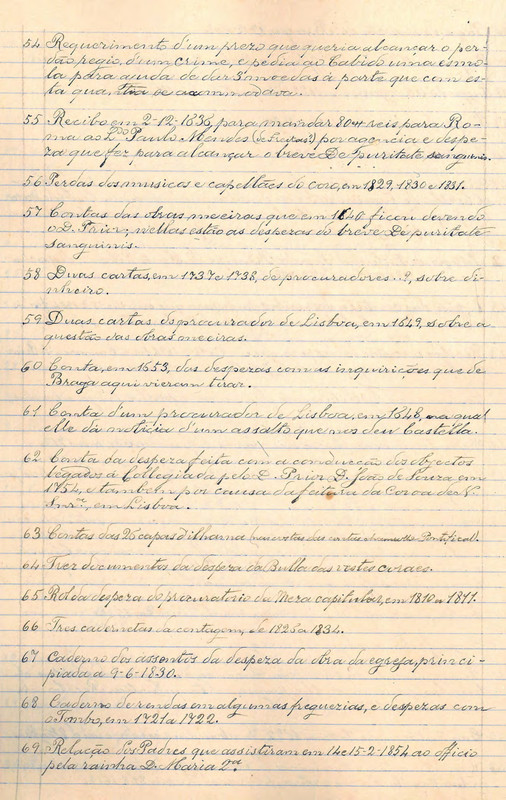 54 Requerimento d'um prezo que queria alcançar o per-
dão regio, d'um crime, e pedia ao Cabido uma esmo-
la para ajuda de dar 3 moedas à parte que com es-
ta quantia se accommodava.
55 Recibo em 2-12-1836, para mandar 804 reis para Ro-
ma ao L.do Paulo Mendes por agencia e despe-
za que fez para alcançar o breve De puritate sanguinis.
56 Perdas dos musicos e capellães do coro, em 1829, 1830 e 1831.
57 Contas das obras meeiras que em 1640 ficou devendo
o D. Prior; nellas estão as despezas do breve De puritate
sanguinis.
58 Duas cartas, em 1737 e 1738, de procuradores ..?, sobre di-
nheiro.
59 Duas cartas do procurador de Lisboa, em 1649, sobre a
questão das obras meeiras.
60 Conta, em 1653, das despezas com as inquirições que de
Braga aqui vieram tirar.
61 Conta d'um procurador de Lisboa, em 1648, na qual
elle dá noticia d'um assalto que nos deu Castella.
62 Conta da despeza feita com a conducção dos objectos
legados à Collegiada pelo D. Prior D. João de Souza em
1754, e tambem por causa da feitoria da Coroa de N.
Snr.ª, em Lisboa.
63 Contas das 25 capas d'ilhama Pontifical).
64 Trez documentos da despeza da Bulla das vestes coraes.
65 Rol da despeza do procuratorio da Meza capitular, em 1810 a 1811.
66 Tres cadernetas da contagem, de 1825 a 1834.
67 Caderno dos assentos da despeza da obra da egreja, princi-
piada a 9-6-1830.
68 Caderno de rendas em algumas freguezias, e despezas com
o Tombo, em 1721 a 1722.
69 Relação dos Padres que assistiram em 14 e 15-2-1854 ao officio
pela rainha D. Maria 2ª